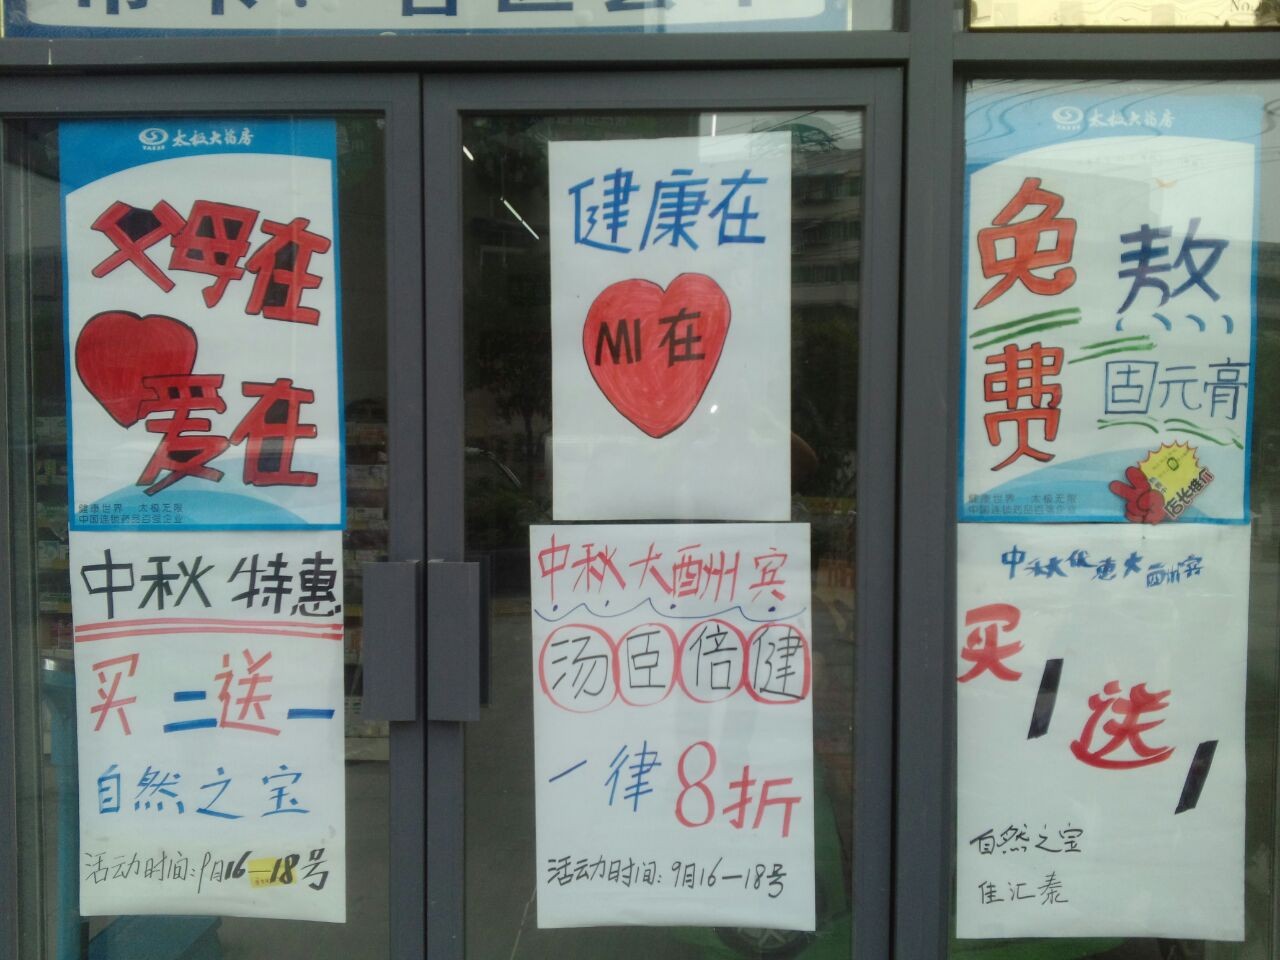 太极大药房
父母在
爱在
健康世界 太极无限
中国连锁药品百强企业
中秋特惠
买二送一
自然之宝
活动时间:9月16—18号
健康在
MI在
中秋大酬宾
汤臣倍健
一律8折
活动时间:9月16—18号
太极大药房
免费
熬
固元膏
店长推荐
健康世界 太极无限
中国连锁药品百强企业
中秋优惠大酬宾
买1送1
自然之宝
佳汇泰